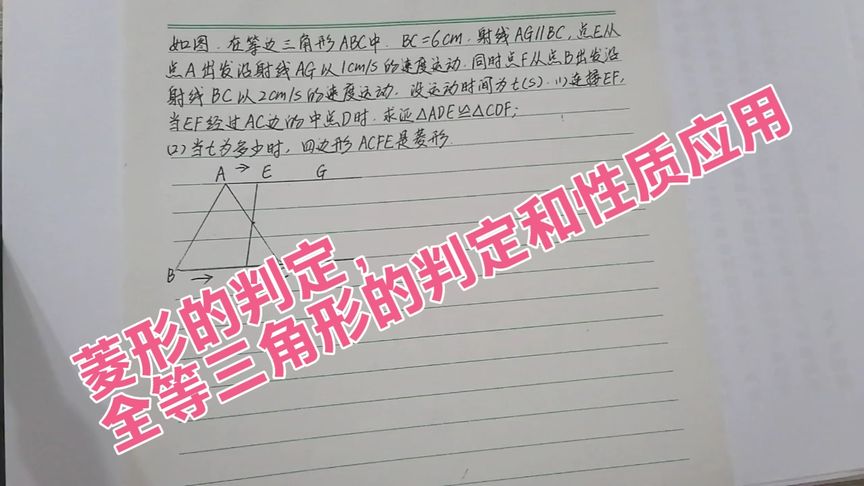 如图.在等边三角形ABC中.BC=6cm.射线AG∥BC,点E从
点A出发沿射线AG以1cm/s的速度运动.同时点F从点B出发沿
射线BC以2cm/s的速度运动.设运动时间为t(s).(1)连接EF,
当EF经过AC边的中点D时.求证△ADE≌△CDF;
(2)当t为多少时,四边形ACFE是菱形.
A → E G
B →
菱形的判定,
全等三角形的判定和性质应用